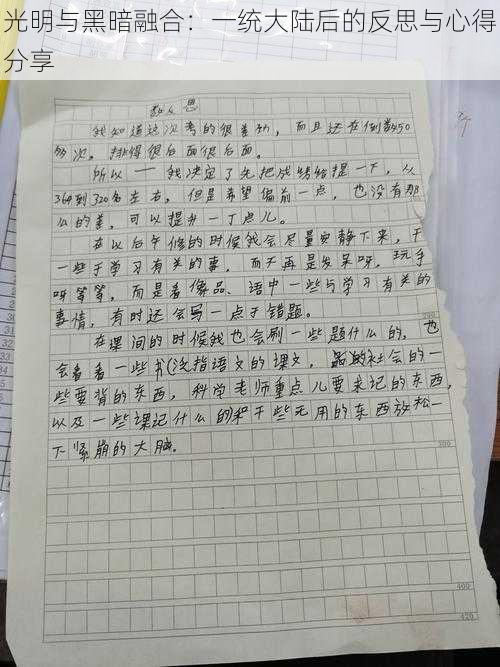 光明与黑暗融合：一统大陆后的反思与心得
分享
我知道这次考的很差劲，而且还在倒数50
多次，排得很后面很后面。
所以一一我决定了先把成绩给提一下，从
364到320名左右，但是希望偏前一点，也没有那
么的差，可以提升一丁点儿。
在以后午修的时候我会尽量安静下来，干
一些于学习有关的事，而不再是发呆呀，玩手
呀等等，而是看像品、语中一些与学习有关的
事情，有时还会写一点于错题。
在课间的时候我也会刷一些题什么的，也
会看看一些书(泛指语文的课文，品的社会的一
些要背的东西，科学老师重点儿要来记的东西，
以及一些课记什么的和干些无用的东西放松一
下紧崩的大脑。
300
400
420